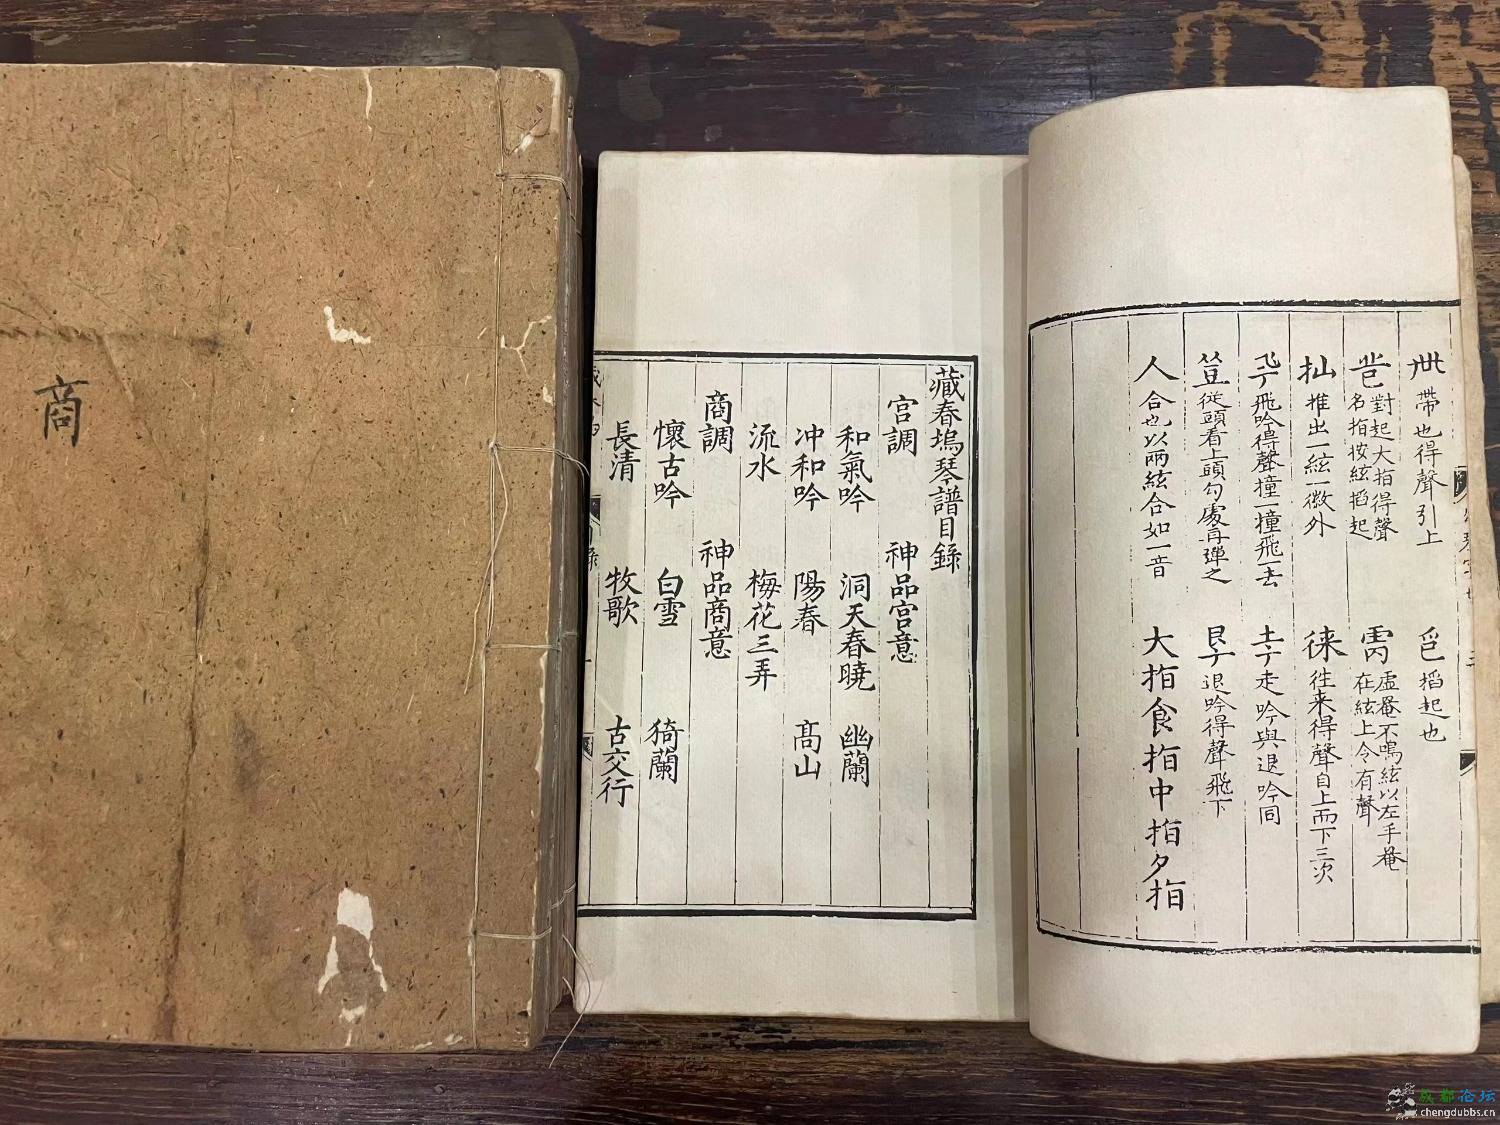 商
帶也得聲引上
搯起也
對起大指得聲
名指按絃搯起
虛罨不鳴絃以左手罨
在絃上令有聲
推出一絃一徽外
徠 往来得聲自上而下三次
飛吟得聲撞一撞飛去
走吟與退吟同
從頭看上頭勾處再彈之
退吟得聲飛下
人 合也以兩絃合如一音
大指食指中指夕指
藏春塢琴譜目錄
宮調 神品宮意
和氣吟 洞天春曉 幽蘭
冲和吟 陽春 高山
流水 梅花三弄
商調 神品商意
懷古吟 白雪 猗蘭
長清 牧歌 古交行
成都论坛
chengdubbs.cn